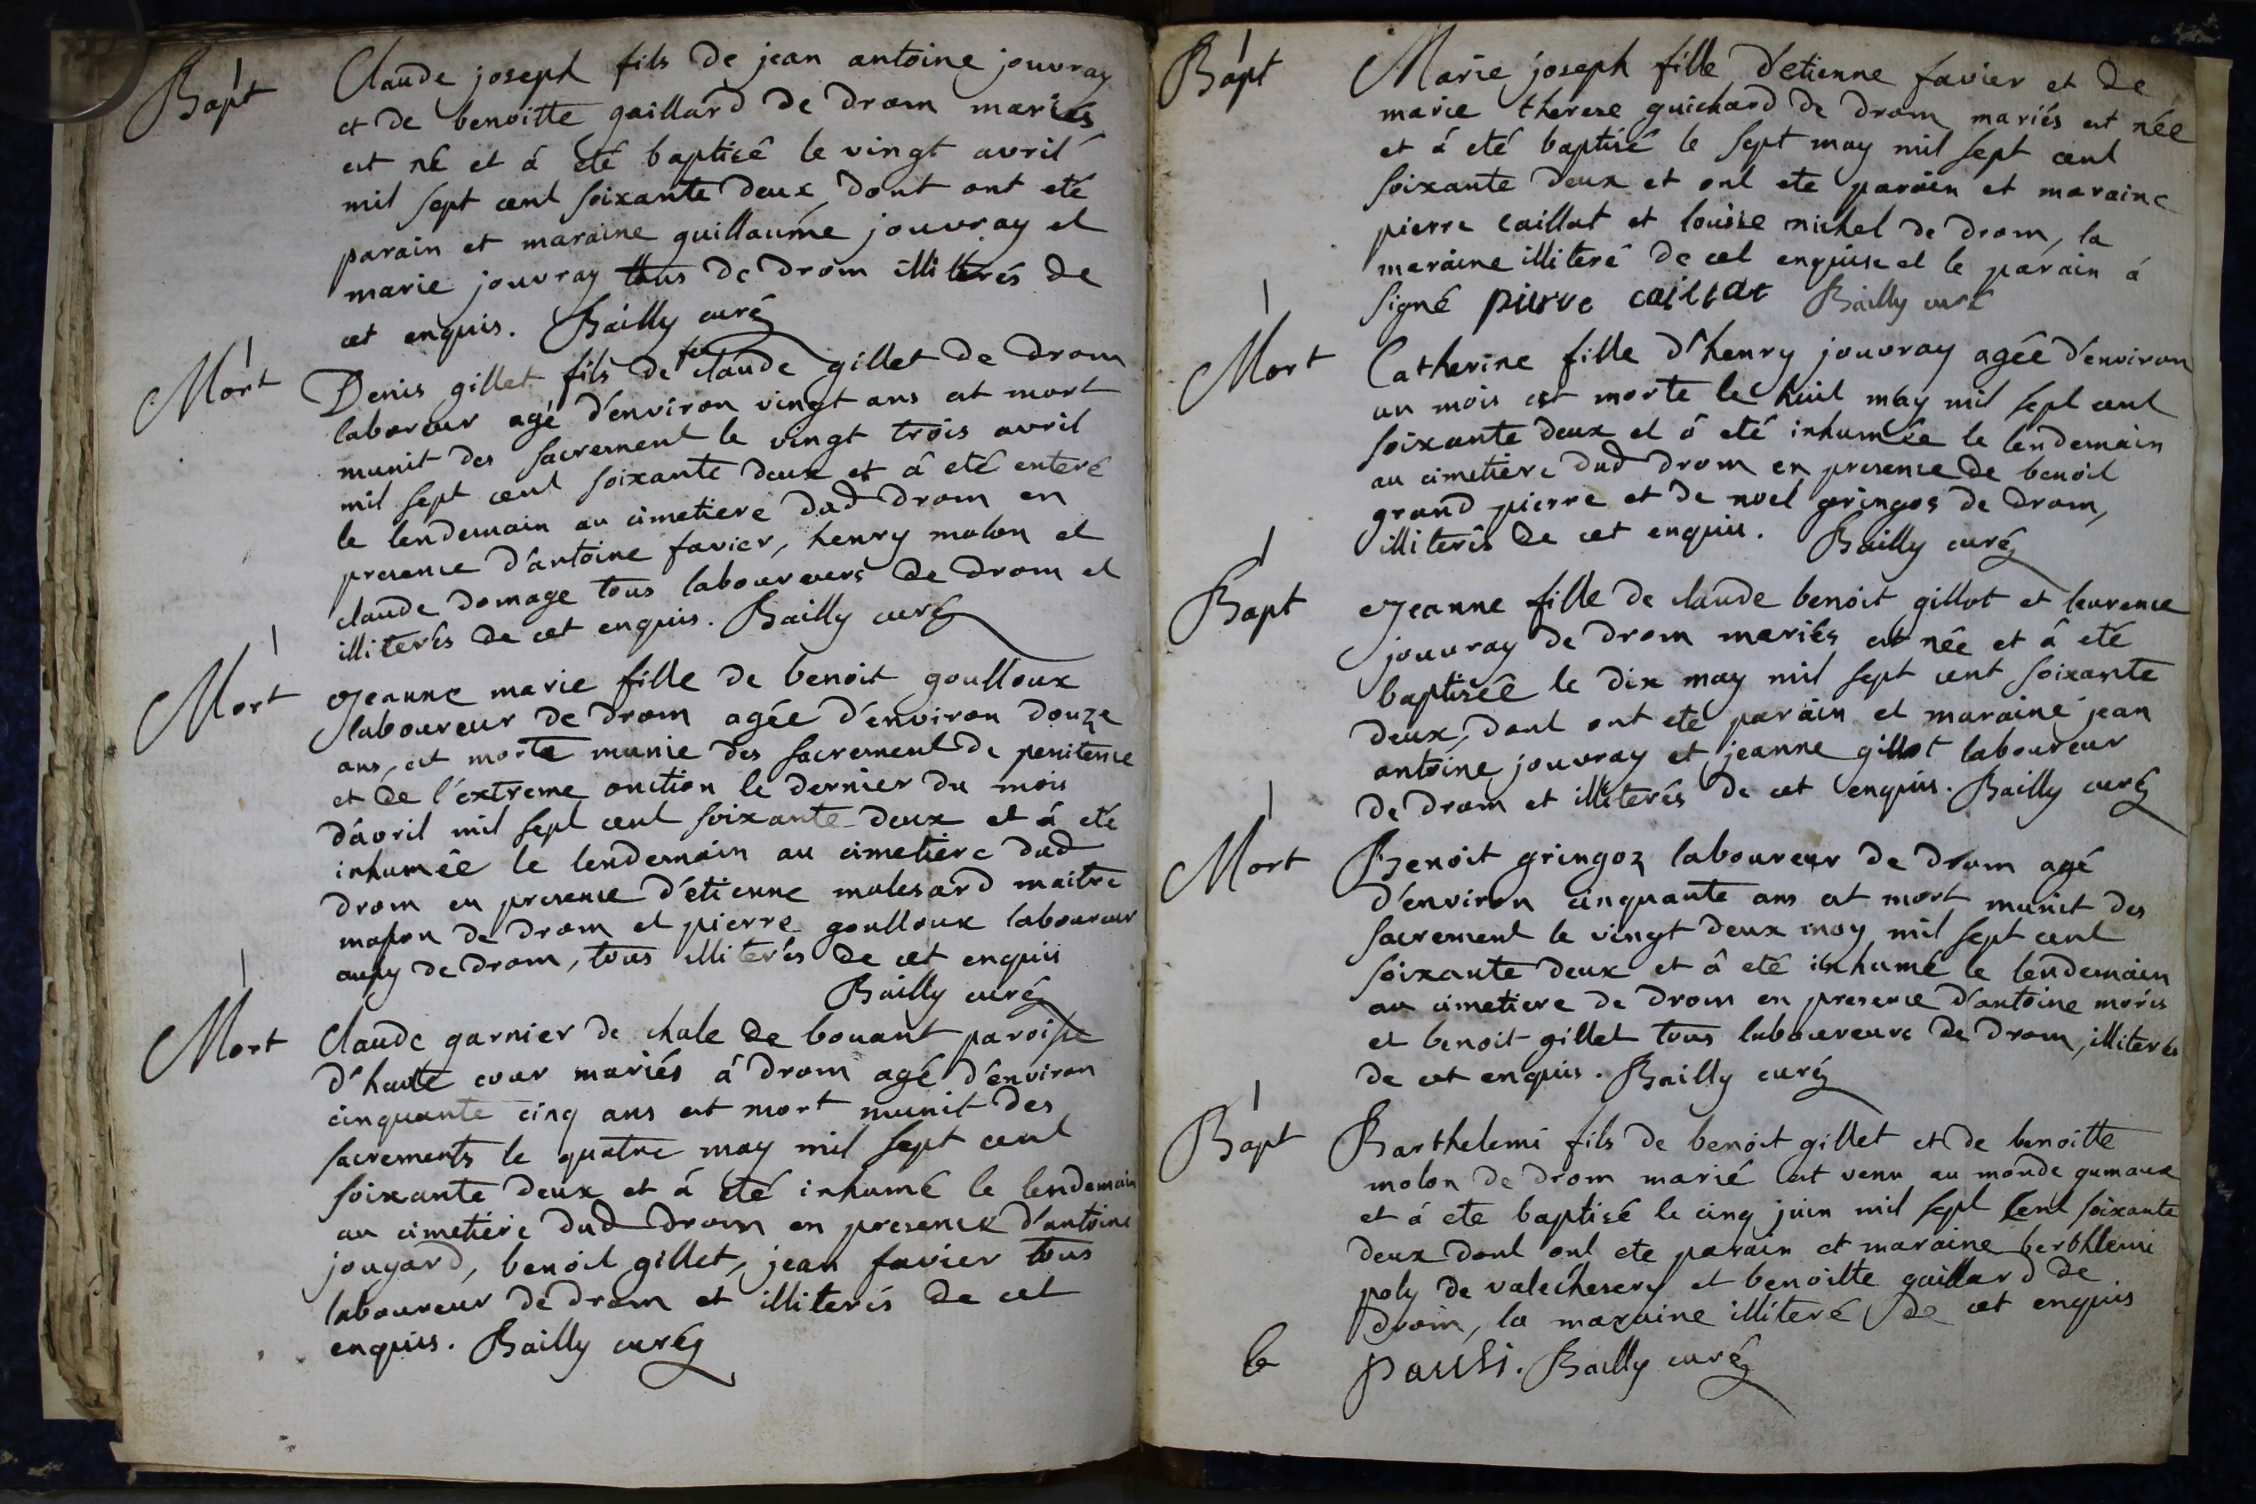 Bapt
Claude joseph fils de jean antoine jouvray
et de benoitte gaillard de drom mariés
est né et á été baptisé le vingt avril
mil sept cent soixante deux, dont ont eté
parain et maraine guillaume jouvray et
marie jouvray tous de drom illiterés de
cet enquis. Bailly curé
Mort
Denis gillet fils de feu claude gillet de drom
laboreur agé d'environ vingt ans est mort
munit des sacrement le vingt trois avril
mil sept cent soixante deux et á eté enteré
le lendemain au cimetiere dud drom en
presence d'antoine favier, henry molon et
claude domage tous laboureurs de drom et
illiterés de cet enquis. Bailly curé
Mort
Jeanne marie fille de benoit goulloux
laboureur de drom agée d'environ douze
ans, est morte munie des sacrement de penitence
et de l'extreme onction le dernier du mois
d'avril mil sept cent soixante deux et á eté
inhumée le lendemain au cimetiere dud
drom en presence d'etienne malesard maitre
mason de drom et pierre goulloux laboureur
aussy de drom, tous illiterés de cet enquis
Bailly curé
Mort
Claude garnier de chale de bouant paroisse
d'haute cour mariés á drom agé d'environ
cinquante cinq ans est mort munit des
sacrements le quatre may mil sept cent
soixante deux et á eté inhumé le lendemain
au cimetiére dud drom en presence d'antoine
jougard, benoit gillet, jean favier tous
laboureur de drom et illiterés de cet
enquis. Bailly curé
Bapt
Marie joseph fille d'etienne favier et de
marie therese guichard de drom mariés est née
et á eté baptisé le sept may mil sept cent
soixante deux et ont ete parain et maraine
pierre caillat et louise michel de drom, la
maraine illiteré de cet enquise et le parain á
signé pierre caillat Bailly curé
Mort
Catherine fille d'henry jouvray agée d'environ
un mois est morte le huit may mil sept cent
soixante deux et á eté inhumée le lendemain
au cimetiere dud drom en presence de benoit
grand pierre et de noel gringos de drom,
illiterés de cet enquis. Bailly curé
Bapt
Jeanne fille de claude benoit gillot et laurence
jouvray de drom mariés est née et á eté
baptisée le dix may mil sept cent soixante
deux, dont ont ete parain et maraine jean
antoine jouvray et jeanne gillot laboureur
de drom et illiterés de cet enquis. Bailly curé
Mort
Benoit gringoz laboureur de drom agé
d'environ cinquante ans est mort munit des
sacrement le vingt deux may mil sept cent
soixante deux et á eté inhumé le lendemain
au cimetiere de drom en presence d'antoine moris
et benoit gillet tous laboureurs de drom, illiterés
de cet enquis. Bailly curé
Bapt
Barthelemi fils de benoit gillet et de benoitte
molon de drom marié est venu au monde gumaux
et á ete baptisé le cinq juin mil sept cent soixante
deux dont ont ete parain et maraine berthlemi
poly de valechesery et benoitte gaillard de
drom, la maraine illiteré de cet enquis
b Pauli. Bailly curé